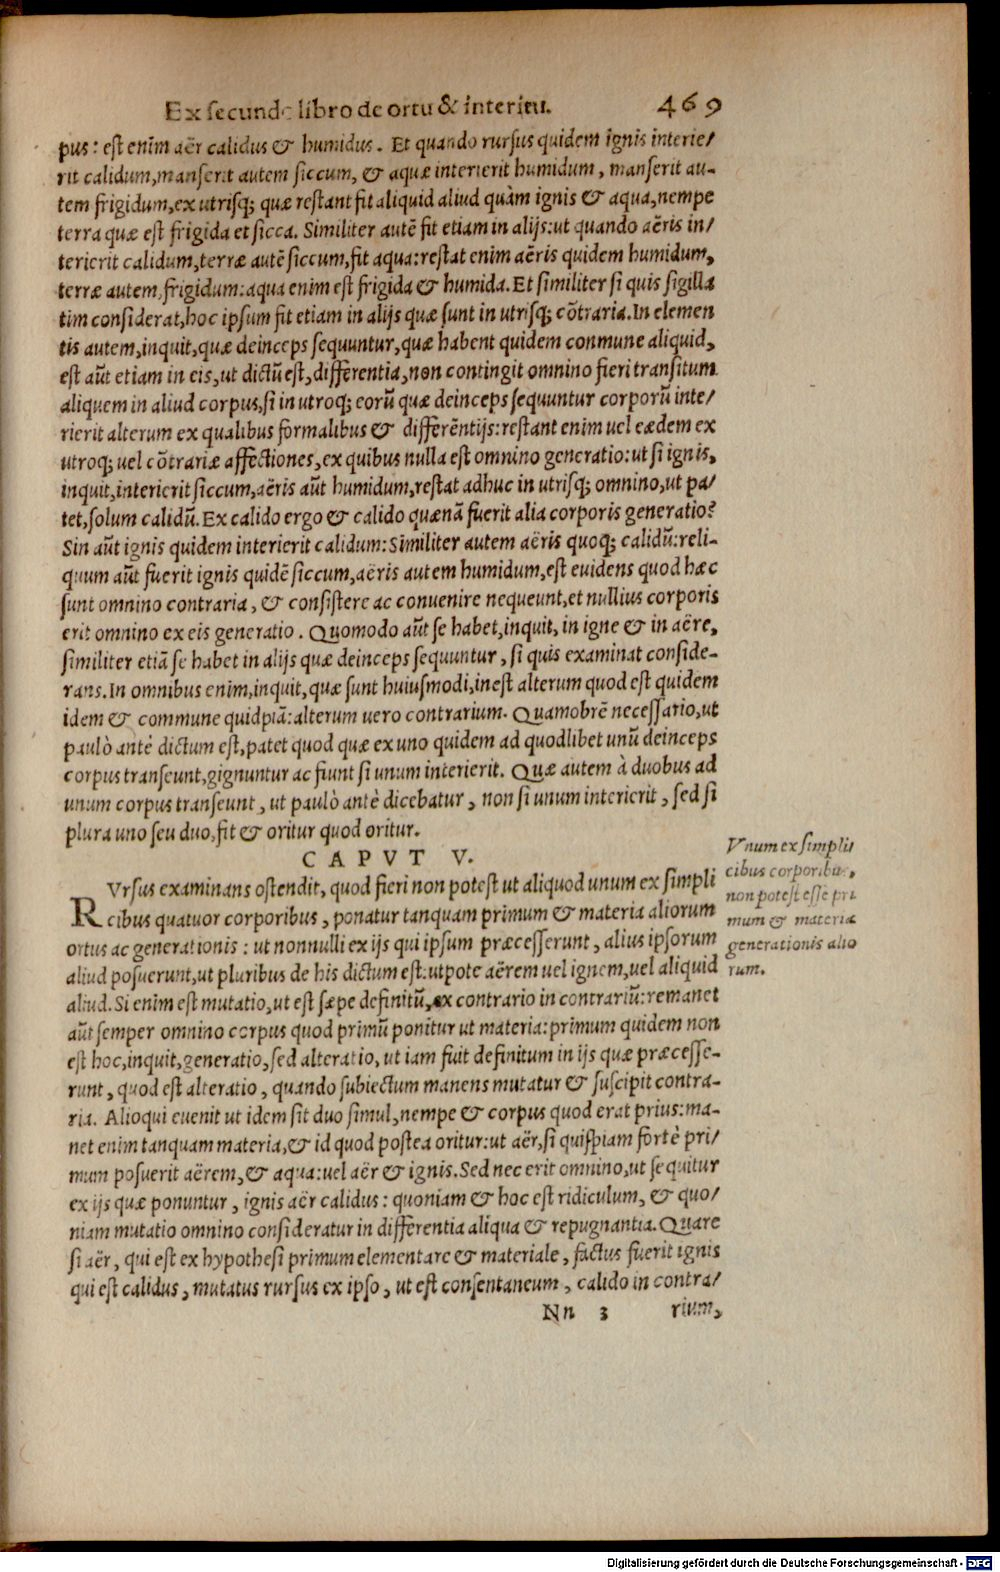 Ex secundo libro de ortu & interitu. 469
pus: est enim aër calidus & humidus. Et quando rursus quidem ignis interie/
rit calidum, manserit autem siccum, & aquæ interierit humidum, manserit au-
tem frigidum, ex utrisq; quæ restant fit aliquid aliud quàm ignis & aqua, nempe
terra quæ est frigida et sicca. Similiter autē fit etiam in alijs: ut quando aëris in/
terierit calidum, terræ autē siccum, fit aqua: restat enim aëris quidem humidum,
terræ autem, frigidum: aqua enim est frigida & humida. Et similiter si quis sigilla
tim considerat, hoc ipsum fit etiam in alijs quæ sunt in utrisq; cōtraria. In elemen
tis autem, inquit, quæ deinceps sequuntur, quæ habent quidem conmune aliquid,
est aūt etiam in eis, ut dictū est, differentia, non contingit omnino fieri transitum
aliquem in aliud corpus, si in utroq; eorū quæ deinceps sequuntur corporū inte/
rierit alterum ex qualibus formalibus & differētijs: restant enim uel eædem ex
utroq; uel cōtrariæ affectiones, ex quibus nulla est omnino generatio: ut si ignis,
inquit, interierit siccum, aëris aūt humidum, restat adhuc in utrisq; omnino, ut pa/
tet, solum calidū. Ex calido ergo & calido quænā fuerit alia corporis generatio?
Sin aūt ignis quidem interierit calidum: Similiter autem aëris quoq; calidū: reli-
quum aūt fuerit ignis quidē siccum, aëris autem humidum, est euidens quod hæc
sunt omnino contraria, & consistere ac conuenire nequeunt, et nullius corporis
erit omnino ex eis generatio. Quomodo aūt se habet, inquit, in igne & in aëre,
similiter etiā se habet in alijs quæ deinceps sequuntur, si quis examinat conside-
rans. In omnibus enim, inquit, quæ sunt huiusmodi, inest alterum quod est quidem
idem & commune quidpiā: alterum uero contrarium. Quamobrē necessario, ut
paulò antè dictum est, patet quod quæ ex uno quidem ad quodlibet unū deinceps
corpus transeunt, gignuntur ac fiunt si unum interierit. Quæ autem à duobus ad
unum corpus transeunt, ut paulò antè dicebatur, non si unum interierit, sed si
plura uno seu duo, fit & oritur quod oritur.
CAPVT V.
RVrsus examinans ostendit, quod fieri non potest ut aliquod unum ex simpli
cibus quatuor corporibus, ponatur tanquam primum & materia aliorum
ortus ac generationis: ut nonnulli ex ijs qui ipsum præcesserunt, alius ipsorum
aliud posuerunt, ut pluribus de his dictum est: utpote aërem uel ignem, uel aliquid
aliud. Si enim est mutatio, ut est sæpe definitū, ex contrario in contrariū: remanet
aūt semper omnino corpus quod primū ponitur ut materia: primum quidem non
est hoc, inquit, generatio, sed alteratio, ut iam fuit definitum in ijs quæ præcesse-
runt, quod est alteratio, quando subiectum manens mutatur & suscipit contra-
ria. Alioqui euenit ut idem sit duo simul, nempe & corpus quod erat prius: ma-
net enim tanquam materia, & id quod postea oritur: ut aër, si quispiam fortè pri/
mum posuerit aërem, & aqua: uel aër & ignis. Sed nec erit omnino, ut sequitur
ex ijs quæ ponuntur, ignis aër calidus: quoniam & hoc est ridiculum, & quo/
niam mutatio omnino consideratur in differentia aliqua & repugnantia. Quare
si aër, qui est ex hypothesi primum elementare & materiale, factus fuerit ignis
qui est calidus, mutatus rursus ex ipso, ut est consentaneum, calido in contra/
Nn 3 rium,
Vnum ex simpli/
cibus corporibus,
non potest esse pri
mum & materia
generationis alio
rum.
Digitalisierung gefördert durch die Deutsche Forschungsgemeinschaft - DFG